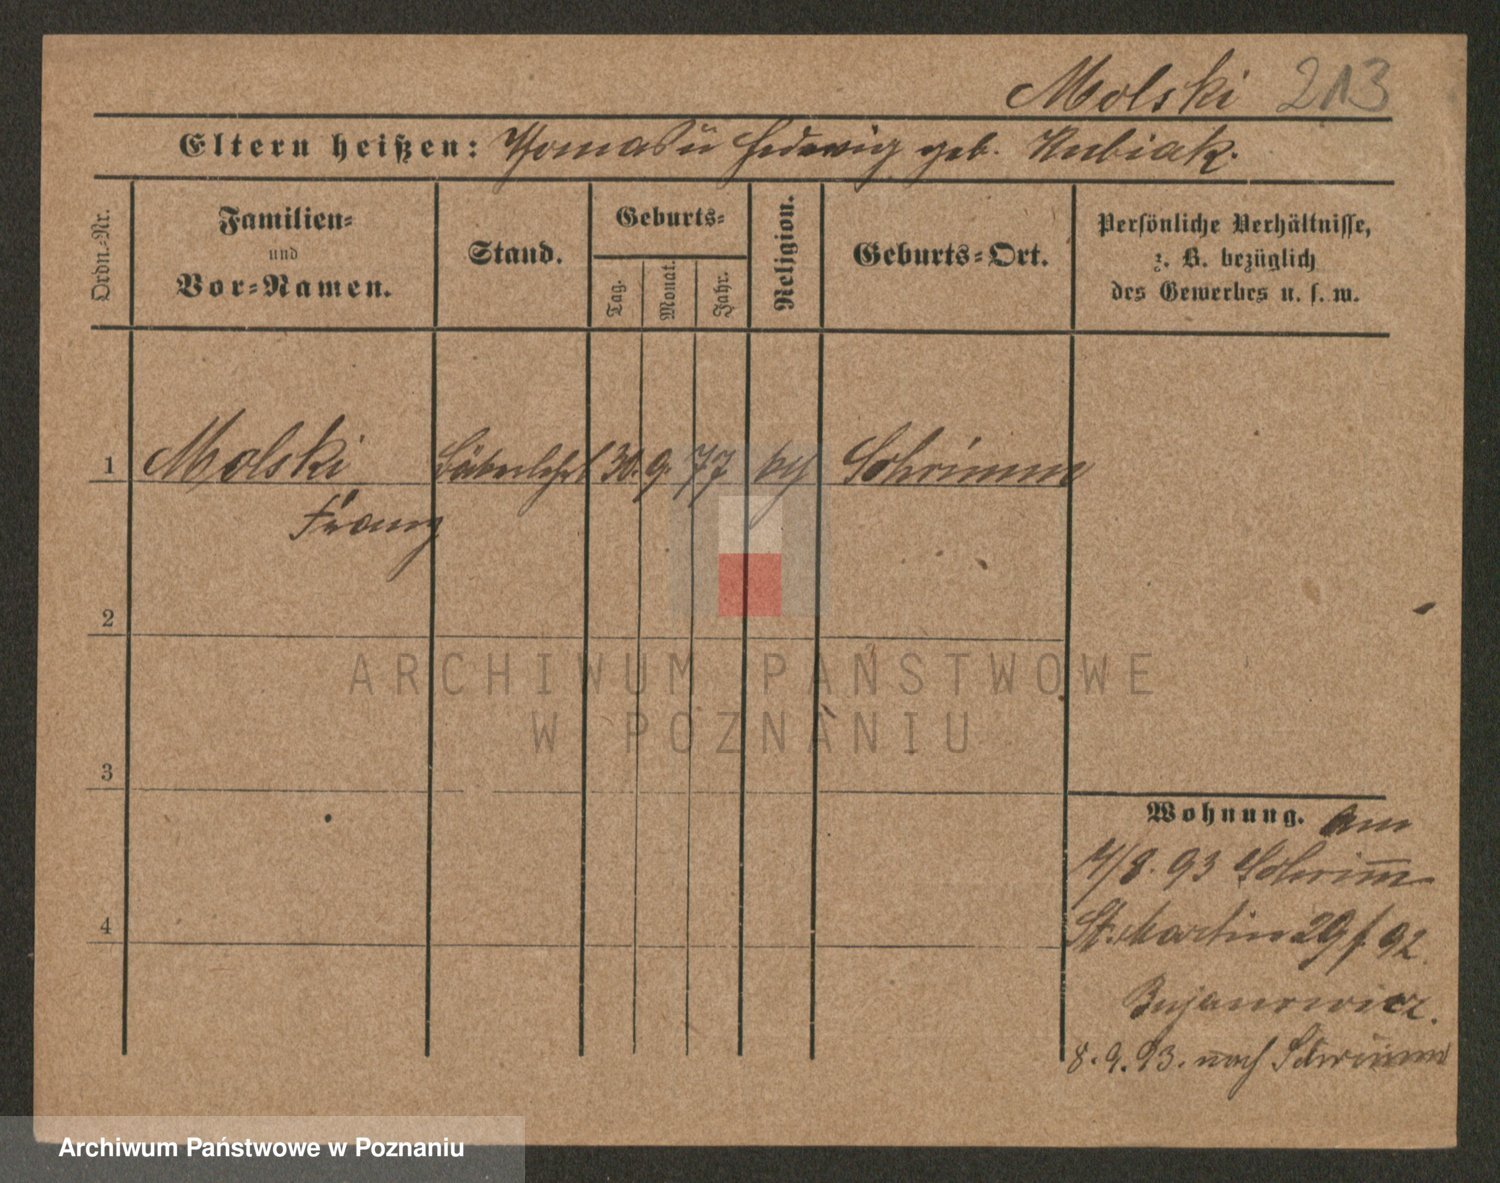 Molski 213
Eltern heißen: Thomas u Hedwig geb. Kubiak.
Ordn.-Nr.
Familien-
und
Vor-Namen.
Stand.
Geburts-
Tag.
Monat.
Jahr.
Religion.
Geburts-Ort.
Persönliche Verhältnisse,
z. B. bezüglich
des Gewerbes u. s. w.
1 Molski 30. 9. 77 Schrimm
Franz
2
3
4
Wohnung. Am
/8. 93 Schrim̅
St. Martin 29 92.
Bujanowicz.
8. 9. 93. nach Schrimm
ARCHIWUM PAŃSTWOWE
W POZNANIU
Archiwum Państwowe w Poznaniu